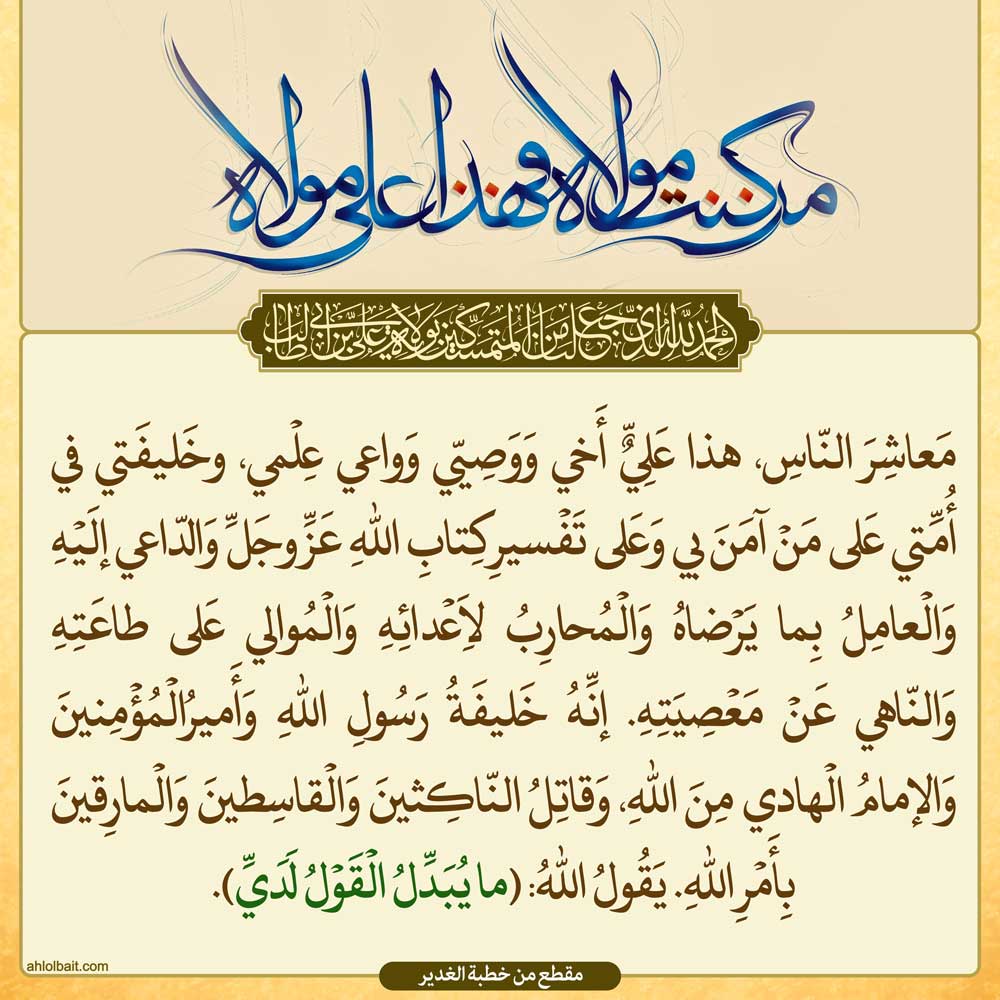 من كنت مولاه فهذا علي مولاه
الحمد لله الذي جعلنا من المتمسكين بولاية علي بن أبي طالب
مَعاشِرَ النّاسِ، هذا عَلِيٌّ أَخي وَوَصِيّي وَواعي عِلْمي، وخَليفَتي في
أُمَّتي عَلى مَنْ آمَنَ بي وَعَلى تَفْسيرِ كِتابِ اللهِ عَزَّ وجَلَّ وَالدّاعي إلَيْهِ
وَالْعامِلُ بِما يَرْضاهُ وَالْمُحارِبُ لأِعْدائِهِ وَالْمُوالي عَلى طاعَتِهِ
وَالنّاهي عَنْ مَعْصِيَتِهِ. إنَّهُ خَليفَةُ رَسُولِ اللهِ وَأَميرُ الْمُؤْمِنينَ
وَالإمامُ الْهادي مِنَ اللهِ، وَقاتِلُ النّاكِثينَ وَالْقاسِطينَ وَالْمارِقينَ
بِأَمْرِ اللهِ. يَقُولُ اللهُ: (ما يُبَدَّلُ الْقَوْلُ لَدَيَّ).
مقطع من خطبة الغدير
ahlolbait.com